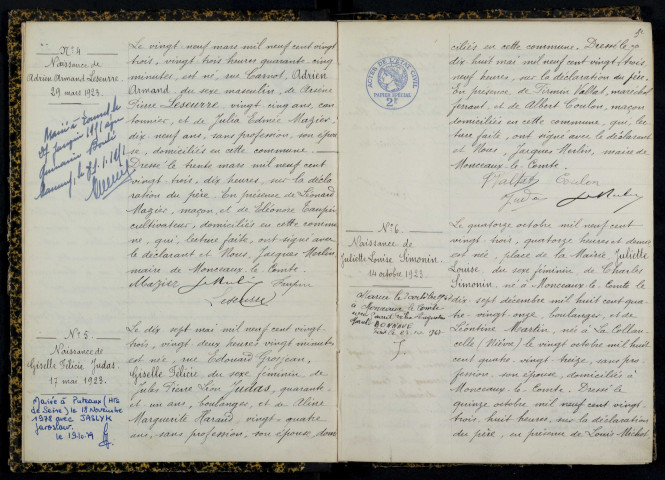 N° 4
Naissance de
Adrien Armand Leseurre.
29 mars 1923.
Le vingt-neuf mars mil neuf cent vingt
trois, vingt-trois heures quarante-cinq
minutes, est né, rue Carnot, Adrien
Armand, du sexe masculin, de Arsène
Pierre Leseurre, vingt cinq ans, can-
tonnier, et de Julia Edmée Maziés,
dix-neuf ans, sans profession, son épou-
se, domiciliés en cette commune.
Dressé le trente mars mil neuf cent
vingt-trois, dix heures, sur la décla-
ration du père. En présence de Léonard
Maziés, maçon, et de Eléonore
cultivateur, domiciliés en cette commu-
ne, qui, lecture faite, ont signé avec
le déclarant et Nous, Jacques Merlin
maire de Monceaux-le-Comte.
Maziés
Leseurre
N° 5.
Naissance de
Giselle Félicie Judas.
17 mai 1923.
Mariée à Puteaux (Hts
de Seine) le 18 Novembre
1978 avec
Jaroslaw.
le
Le dix sept mai mil neuf cent vingt-
trois, vingt-deux heures vingt minutes
est née, rue Edouard Grosjean,
Giselle Félicie du sexe féminin, de
Jules Pierre Léon Judas, quarante-
et un ans, boulanger, et de Aline
Marguerite Harand, vingt-quatre
ans, sans profession, son épouse, domi
ciliés en cette commune. Dressé le
dix huit mai mil neuf cent vingt-trois,
neuf heures, sur la déclaration du père.
En présence de Firmin Vallat, maréchal
ferrant, et de Albert Coulon, maçon
domiciliés en cette commune, qui, lec-
ture faite, ont signé avec le déclarant
et Nous, Jacques Merlin, maire de
Monceaux-le-Comte.
ACTES DE L'ETAT CIVIL
PAPIER SPECIAL
2F
Judas
N° 6.
Naissance de
Juliette Louise Simonin.
14 octobre 1923.
Le quatorze octobre mil neuf cent
vingt-trois, quatorze heures et demie
est née, place de la Mairie, Juliette
Louise, du sexe féminin, de Charles
Simonin, né à Monceaux-le-Comte le
dix sept décembre mil huit cent qua-
tre-vingt-onze, boulanger, et de
Léontine Martin, née à La Collan-
celle (Nièvre) le vingt octobre mil huit
cent quatre-vingt-treize, sans pro-
fession, son épouse, domiciliés à
Monceaux-le-Comte. Dressé le
quinze octobre mil neuf cent vingt-
trois, huit heures, sur la déclaration
du père, en présence de Louis Michot,